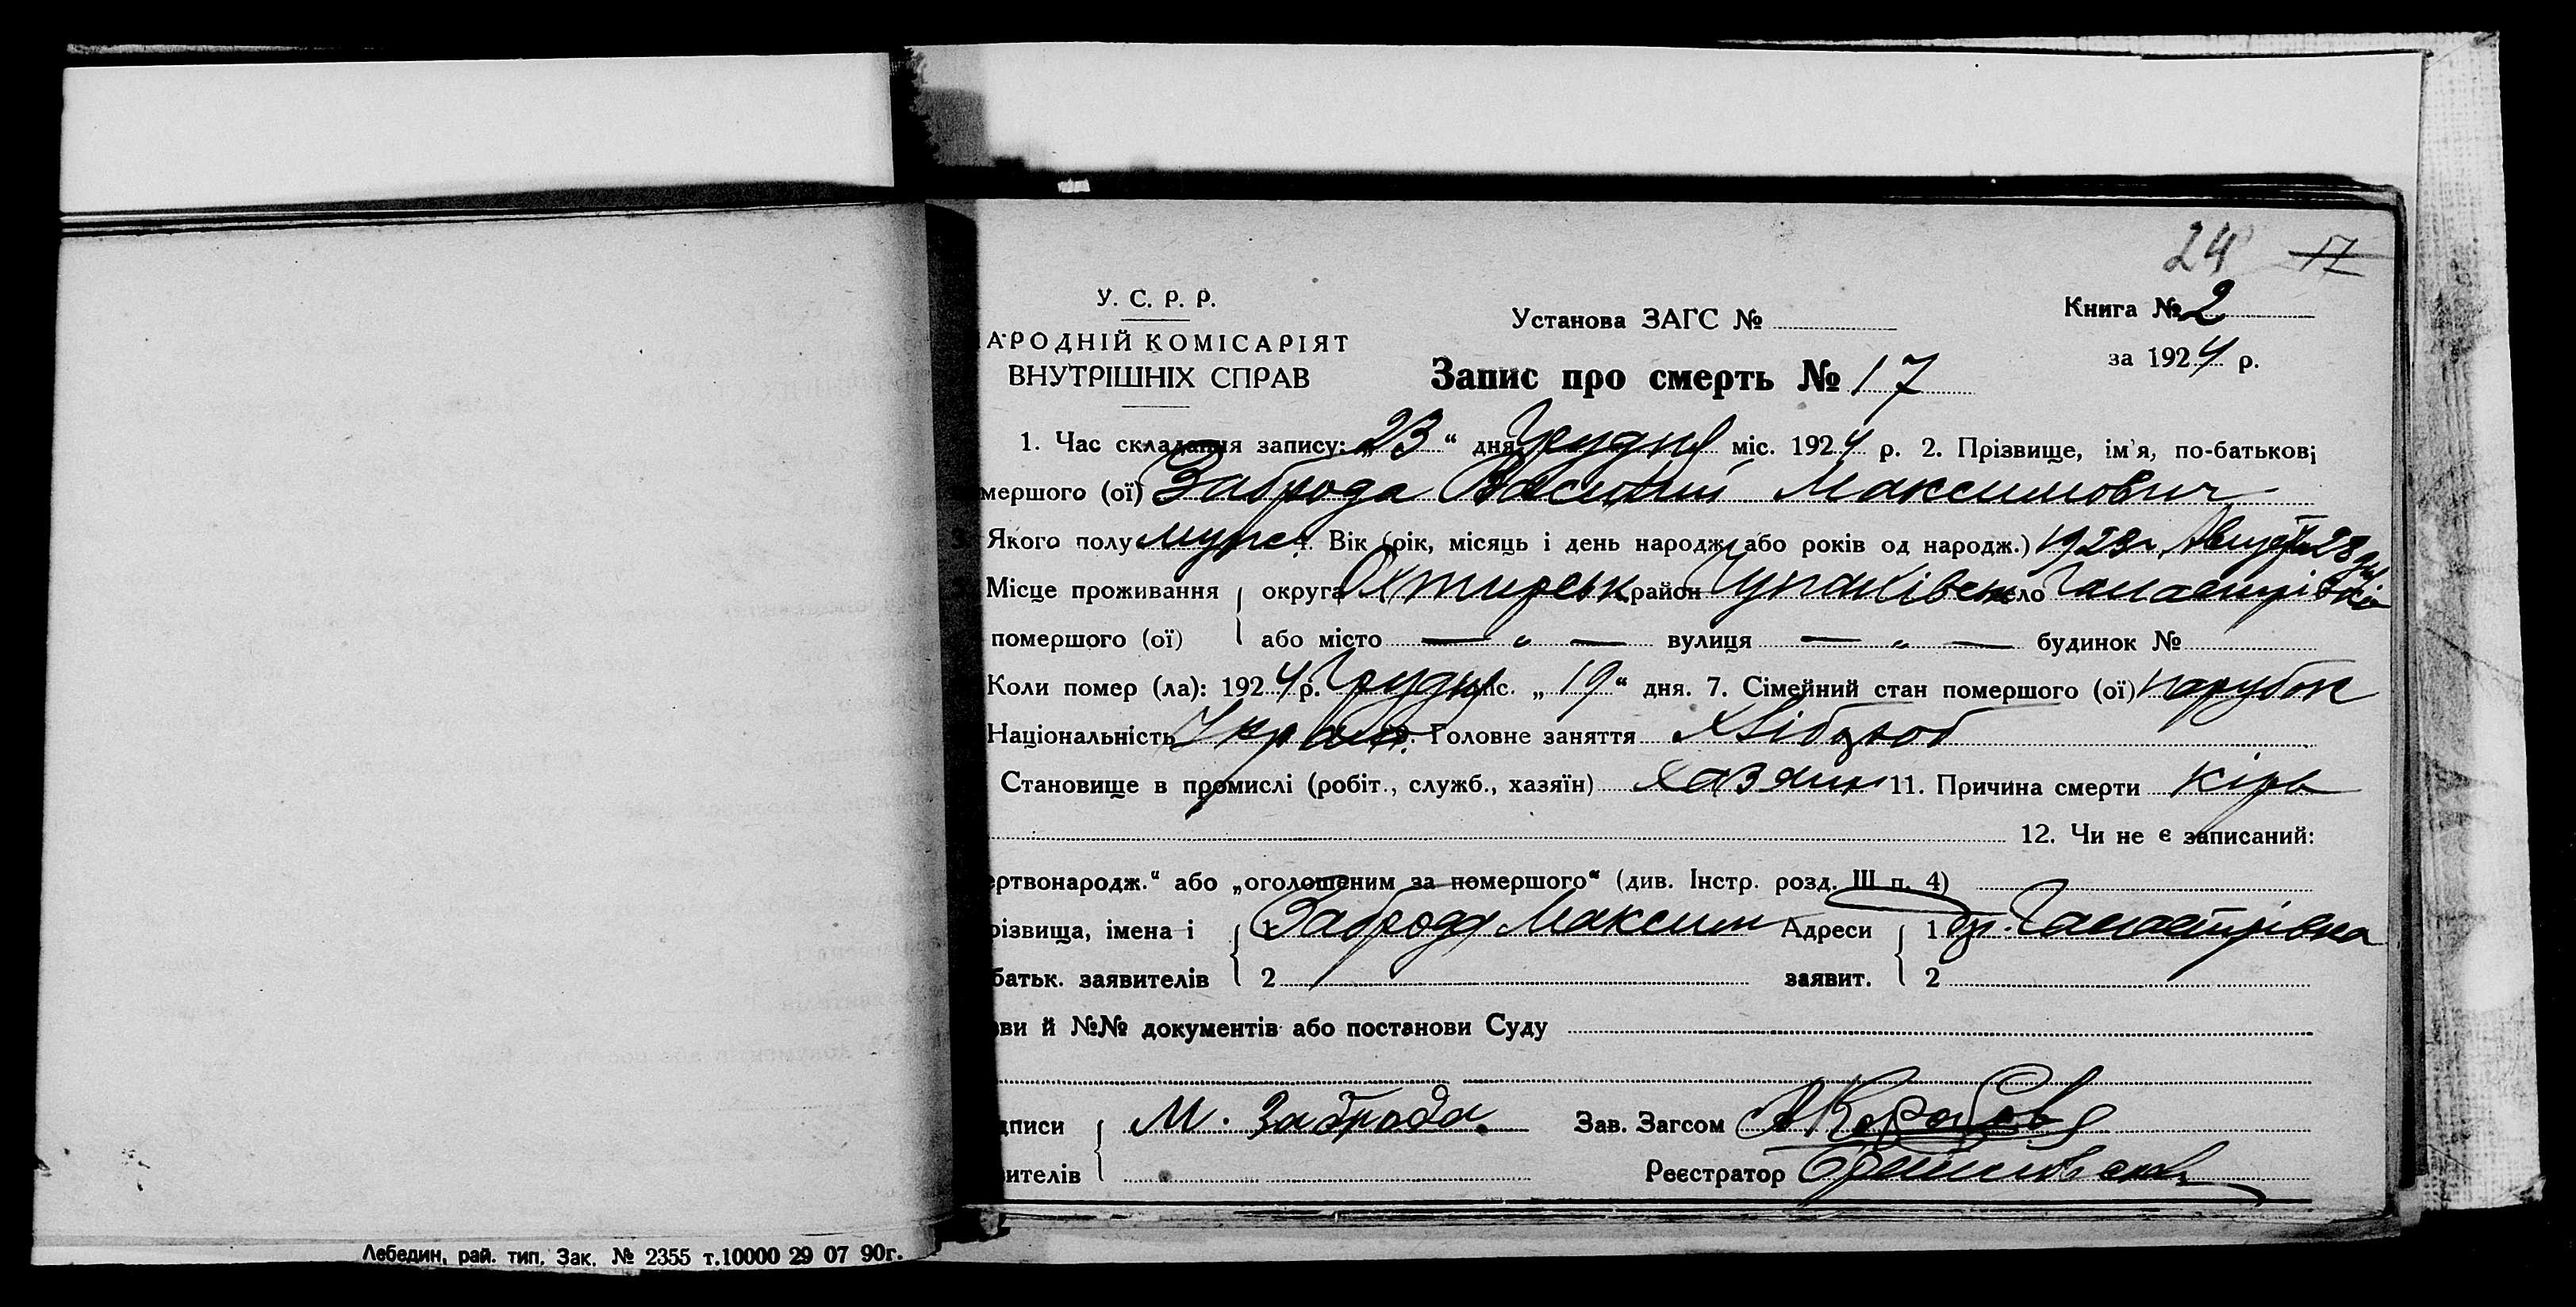 24 17
У. С. Р. Р.
АРОДНІЙ КОМІСАРІЯТ
ВНУТРІШНІХ СПРАВ
Установа ЗАГС №
Книга № 2
за 1924 р.
Запис про смерть № 17
1. Час складання запису: „23“ дня Грудня міс. 1924 р. 2. Прізвище, ім'я, по-батькові
мершого (ої) Заброда Василий Максимович
3. Якого полу муж. 4. Вік (рік, місяць і день народж. або років од народж.) 1923 г. Август 28 дня
Місце проживання округа Охтирськ район Чупахівськ село
помершого (ої) або місто — „ — вулиця — „ — будинок №
Коли помер (ла): 1924 р. Грудня міс. „19“ дня. 7. Сімейний стан помершого (ої) парубок
Національність Україн. 9. Головне заняття Хлібороб
Становище в промислі (робіт., служб., хазяїн) хазяин 11. Причина смерти кірь
12. Чи не є записаний:
ертвонародж.“ або „оголошеним за помершого“ (див. Інстр. розд. III п. 4)
різвища, імена і 1 Заброда Максим Адреси 1
батьк. заявителів 2 заявит. 2
ви й №№ документів або постанови Суду
дписи М. Заброда. Зав. Загсом
вителів Реєстратор
Лебедин, рай. тип. Зак. № 2355 т.10000 29 07 90г.